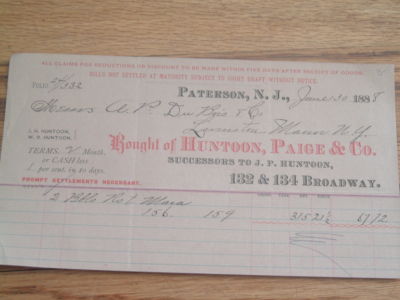 ALL CLAIMS FOR DEDUCTIONS OR DISCOUNT TO BE MADE WITHIN FIVE DAYS AFTER RECEIPT OF GOODS.
BILLS NOT SETTLED AT MATURITY SUBJECT TO SIGHT DRAFT WITHOUT NOTICE.
FOLIO
PATERSON, N. J., June 30 1888
A. P. Du Bois & Co
J. H. HUNTOON,
W. B. HUNTOON,
N.Y.
Bought of HUNTOON, PAIGE & CO.
SUCCESSORS TO J. P. HUNTOON,
132 & 134 BROADWAY.
TERMS: Month.
or CASH less
per cent. in 10 days.
PROMPT SETTLEMENTS NECESSARY.
2 Rst
156. 159 315 21½ 67.72